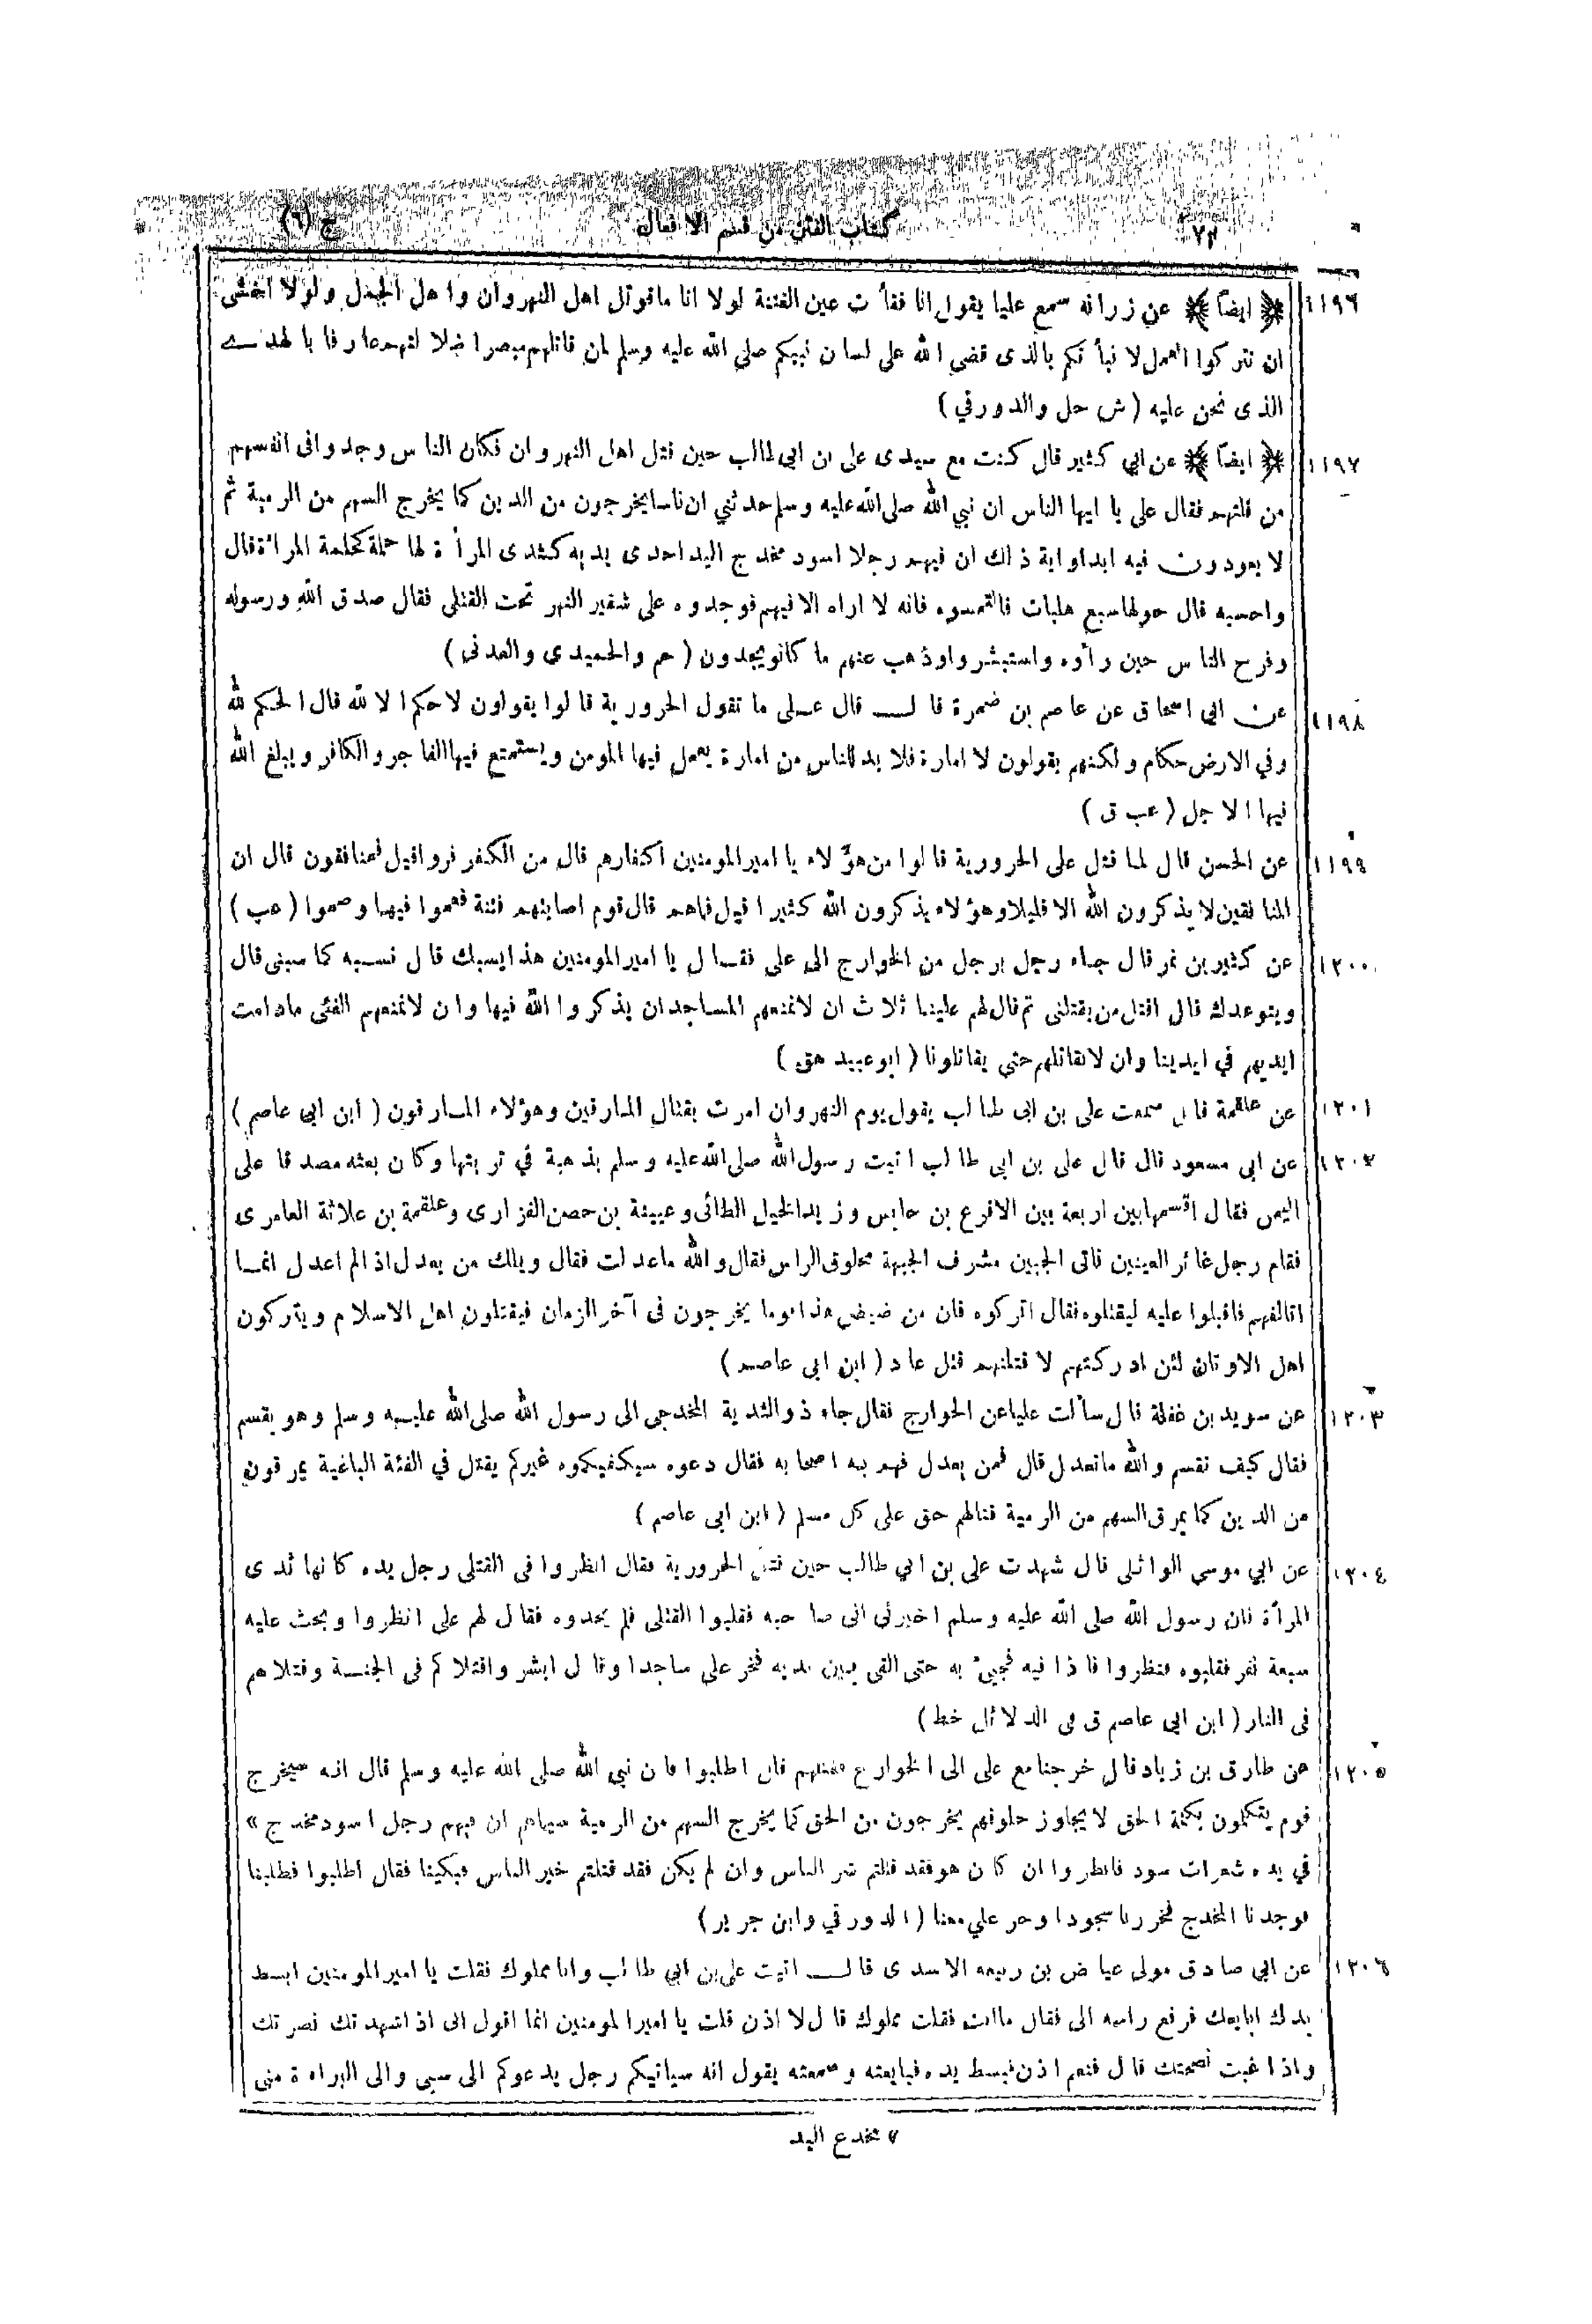 ٧٢ كتاب الفتن من قسم الافعال ج (٦)
١١٩٦ ﴿ ايضاً ﴾ عن زر انه سمع عليا يقول انا فقأت عين الفتنة لولا انا ماقوتل اهل النهروان واهل الجمل ولولا اخشى
ان تتركوا العمل لانبأتكم بالذى قضى الله على لسان نبيكم صلى الله عليه وسلم لمن قاتلهم مبصرا ضلالتهم عارفا بالهدى
الذى نحن عليه (ش حل والدورقي)
١١٩٧ ﴿ ايضاً ﴾ عن ابي كثير قال كنت مع سيدى على بن ابى طالب حين قتل اهل النهروان فكان الناس وجدوا فى انفسهم
من قتلهم فقال على يا ايها الناس ان نبي الله صلى الله عليه وسلم حدثني ان ناسا يخرجون من الدين كما يخرج السهم من الرمية ثم
لا يعودون فيه ابدا واية ذالك ان فيهم رجلا اسود مخدج اليد احدى يديه كثدى المرأة لها حلمة كحلمة المرأة قال
واحسبه قال حولها سبع هلبات فالتمسوه فانه لا اراه الا فيهم فوجدوه على شفير النهر تحت القتلى فقال صدق الله ورسوله
وفرح الناس حين رأوه واستبشروا وذهب عنهم ما كانو يجدون (حم والحميدى والعدنى)
١١٩٨ عن ابي اسحاق عن عاصم بن ضمرة قال قال على ما تقول الحرورية قالوا يقولون لا حكم الا لله قال الحكم لله
وفي الارض حكام ولكنهم يقولون لا امارة فلا بد للناس من امارة يعمل فيها المومن ويستمتع فيها الفاجر والكافر ويبلغ الله
فيها الاجل (عب ق)
١١٩٩ عن الحسن قال لما قتل على الحرورية قالوا من هؤلاء يا امير المومنين اكفارهم قال من الكفر فروا قيل فمنافقون قال ان
المنافقين لا يذكرون الله الا قليلا وهؤلاء يذكرون الله كثيرا قيل فماهم قال قوم اصابتهم فتنة فعموا فيها وصموا (عب)
١٢٠٠ عن كثير بن نمر قال جاء رجل برجل من الخوارج الى على فقال يا امير المومنين هذا يسبك قال نسبه كما سبنى قال
ويتوعدك قال اقتل من يقتلنى ثم قال لهم علينا ثلاث ان لانمنعهم المساجد ان يذكروا الله فيها وان لانمنعهم الفئى مادامت
ايديهم في ايدينا وان لانقاتلهم حتى يقاتلونا (ابوعبيد هق)
١٢٠١ عن علقمة قال سمعت على بن ابى طالب يقول يوم النهروان امرت بقتال المارقين وهؤلاء المارقون (ابن ابى عاصم)
١٢٠٢ عن ابى مسعود قال قال على بن ابى طالب اتيت رسول الله صلى الله عليه وسلم بذهبة في تربتها وكان بعثه مصدقا على
اليمن فقال اقسمها بين اربعة بين الاقرع بن حابس وزيد الخيل الطائى وعيينة بن حصن الفزارى وعلقمة بن علاثة العامرى
فقام رجل غائر العينين ناتى الجبين مشرف الجبهة محلوق الراس فقال والله ماعدلت فقال ويلك من يعدل اذا لم اعدل انما
اتالفهم فاقبلوا عليه ليقتلوه فقال اتركوه فان من ضيضى هذا قوما يخرجون فى آخر الزمان فيقتلون اهل الاسلام ويتركون
اهل الاوثان لئن ادركتهم لاقتلنهم قتل عاد (ابن ابى عاصم)
١٢٠٣ عن سويد بن غفلة قال سألت عليا عن الخوارج فقال جاء ذو الثدية المخدجى الى رسول الله صلى الله عليه وسلم وهو يقسم
فقال كيف تقسم والله ماتعدل قال فمن يعدل فهم به اصحابه فقال دعوه سيكفيكموه غيركم يقتل في الفئة الباغية يمرقون
من الدين كما يمرق السهم من الرمية قتالهم حق على كل مسلم (ابن ابى عاصم)
١٢٠٤ عن ابي موسى الوائلى قال شهدت على بن ابي طالب حين قتل الحرورية فقال انظروا فى القتلى رجل يده كانها ثدى
المرأة فان رسول الله صلى الله عليه وسلم اخبرنى انى صاحبه فقلبوا القتلى فلم يجدوه فقال لهم على انظروا وبحث عليه
سبعة نفر فقلبوه فنظروا فاذا فيه فجيئ به حتى القى بين يديه فخر على ساجدا وقال ابشروا قتلاكم فى الجنة وقتلاهم
فى النار (ابن ابى عاصم ق فى الدلائل خط)
١٢٠٥ عن طارق بن زياد قال خرجنا مع على الى الخوارج فقتلهم قال اطلبوا فان نبي الله صلى الله عليه وسلم قال انه سيخرج
قوم يتكلمون بكلمة الحق لا يجاوز حلوقهم يخرجون من الحق كما يخرج السهم من الرمية سيماهم ان فيهم رجل اسود مخدج »
في يده شعرات سود فانظروا ان كان هو فقد قتلتم شر الناس وان لم يكن فقد قتلتم خير الناس فبكينا فقال اطلبوا فطلبنا
فوجدنا المخدج فخررنا سجودا وخر علي معنا (الدورقي وابن جرير)
١٢٠٦ عن ابي صادق مولى عياض بن ربيعه الاسدى قال اتيت على بن ابي طالب وانا مملوك فقلت يا امير المومنين ابسط
يدك ابايعك فرفع راسه الى فقال ماانت فقلت مملوك قال لا اذن قلت يا امير المومنين انما اقول انى اذا شهدتك نصرتك
واذا غبت نصحتك قال فنعم اذن فبسط يده فبايعته وسمعته يقول انه سياتيكم رجل يدعوكم الى سبى والى البراءة منى
٧ مخدع اليد